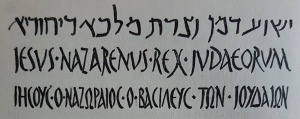 ישוע דמן נצרת מלכא דיהודיא
JESUS·NAZARENUS·REX·JUDAEORUM
ΙΗϹΟΥϹ·Ο·ΝΑΖΩΡΑΙΟϹ·Ο·ΒΑϹΙΛΕΥϹ·ΤΩΝ·ΙΟΥΔΑΙΩΝ